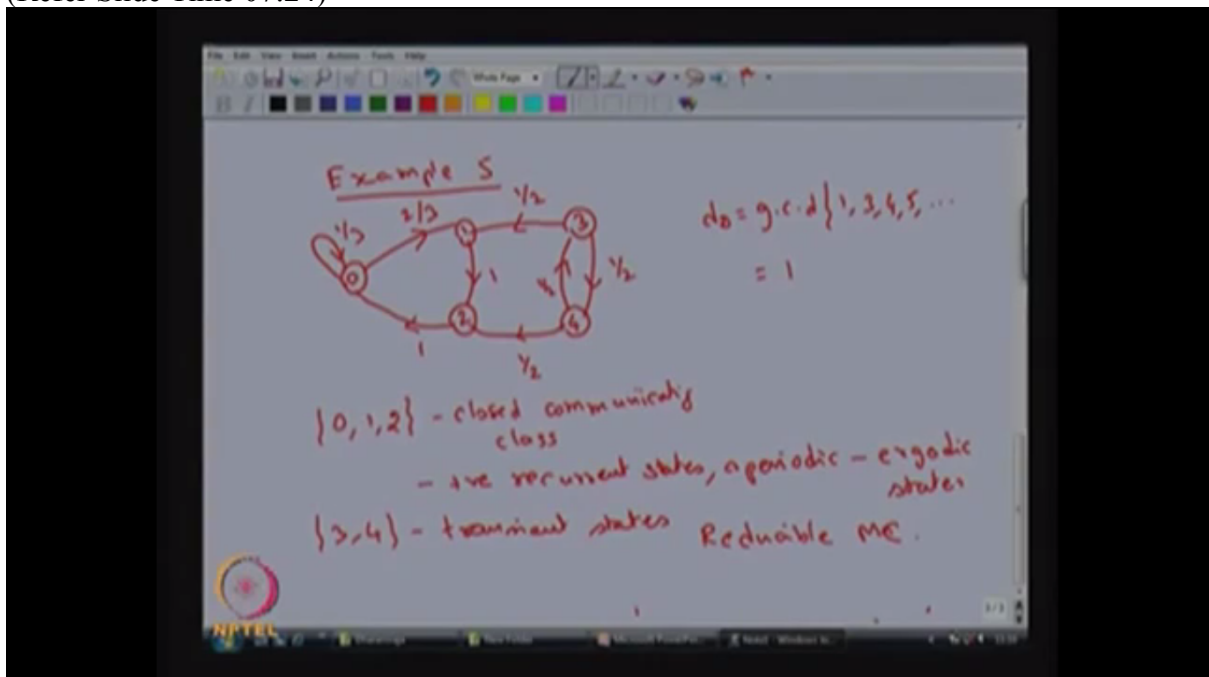 File Edit View Insert Actions Tools Help
Whole Page
B I
Example 5
1/3
2/3
1/2
0
1
3
1
1/2
1/2
2
4
1
1/2
d0 = g.c.d {1, 3, 4, 5, ...
= 1
{0, 1, 2} - closed communicatig
class
- +ve recurrent states, aperiodic - ergodic
states
{3, 4} - transient states Reducible MC.
NPTEL
New Folder